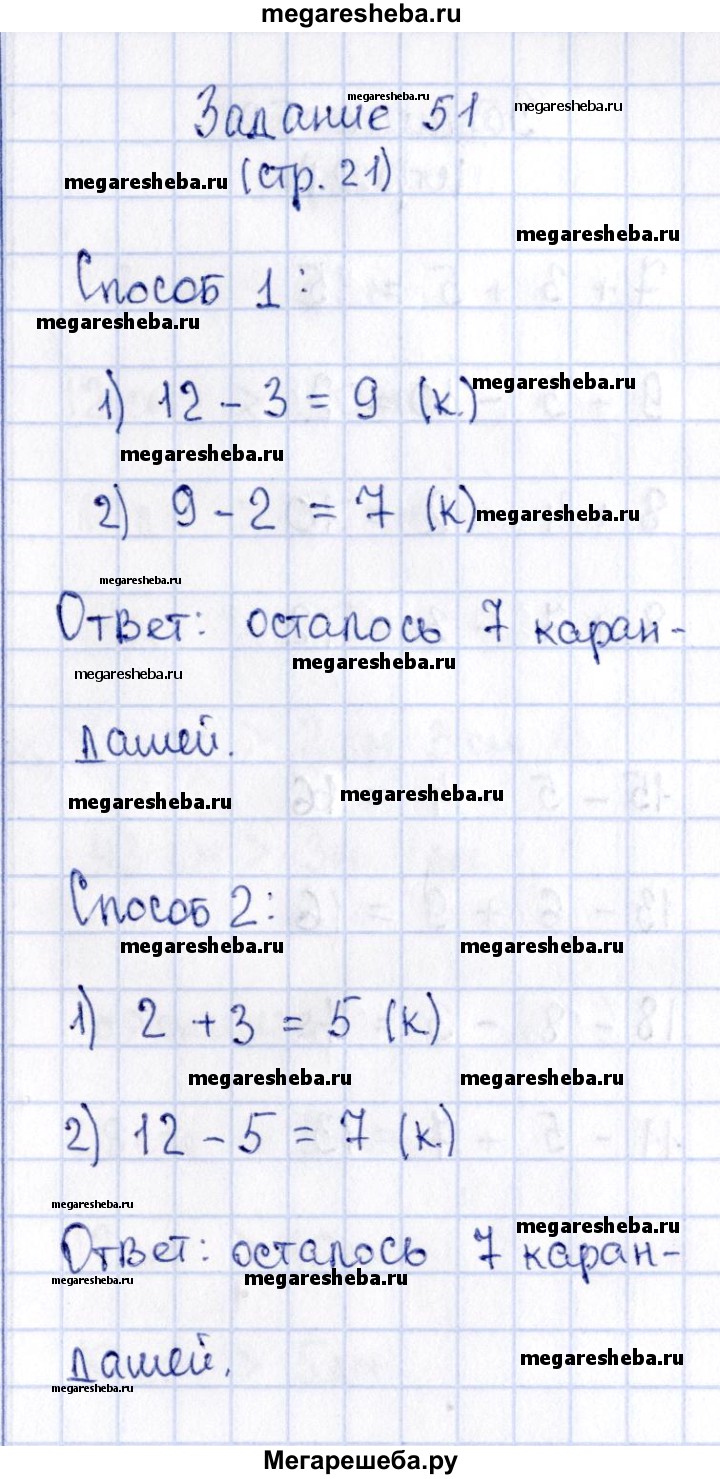 megaresheba.ru
Задание 51
megaresheba.ru
megaresheba.ru
(стр. 21)
megaresheba.ru
megaresheba.ru
Способ 1:
megaresheba.ru
1) 12 - 3 = 9 (к.)
megaresheba.ru
megaresheba.ru
2) 9 - 2 = 7 (к)
megaresheba.ru
megaresheba.ru
Ответ: осталось 7 каран-
megaresheba.ru
megaresheba.ru
дашей.
megaresheba.ru
megaresheba.ru
Способ 2:
megaresheba.ru
megaresheba.ru
1) 2 + 3 = 5 (к)
megaresheba.ru
megaresheba.ru
2) 12 - 5 = 7 (к.)
megaresheba.ru
megaresheba.ru
Ответ: осталось 7 каран-
megaresheba.ru
megaresheba.ru
дашей.
megaresheba.ru
megaresheba.ru
Мегарешеба.ру